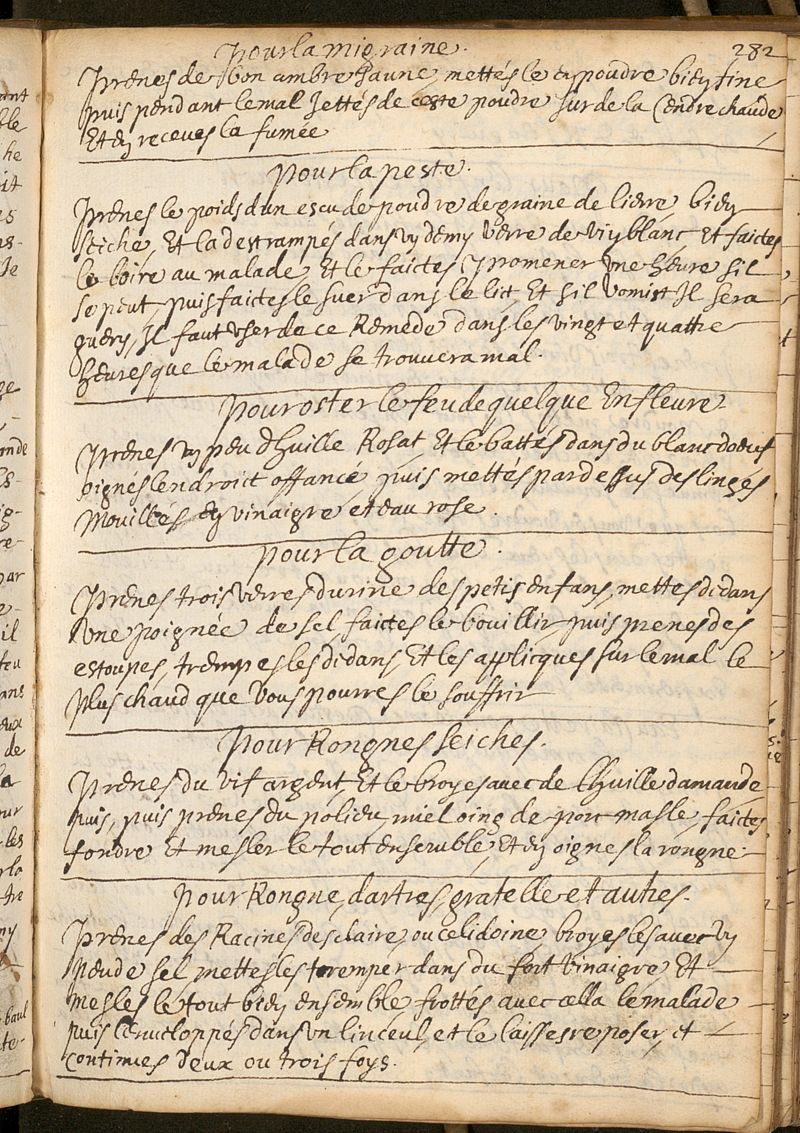 282
pour la migraine.
Prenes de bon ambre Jaune, mettés le en poudre bien fine
puis pendant le mal Jettés de ceste poudre sur de la Cendre chaude
Et en receves la fumée
pour la peste.
Prenes le poids dun escu de poudre de graine de lierre bien
seiche, Et la destrampés dans un demy verre de vin blanc Et faictes
le boire au malade Et le faictes promener une heure sil
se peut, puis faictes le suer dans le lict, Et sil vomist Il sera
guery, Il faut user de ce Remede dans les vingt et quattre
heures que le malade se trouvera mal.
pour oster le feu de quelque Enfleure
Prenes un peu dhuille Rosat Et le battés dans du blanc doeuf
oignés lendroict offancé puis mettes par dessus des linges
Mouillés en vinaigre et eau rose.
pour la goutte.
Prenes trois verres durine des petis enfans, mettes didans
une poignée de sel, faictes le bouillir puis prenes des
estoupes, trempes les didans, Et les applicques sur le mal le
plus chaud que vous pourres le souffrir
pour Rongnes seiches.
Prenes du vif argent, Et le broyes avec de lhuille damande
puis, puis prenes du polieu, miel oing de porc masle, faictes
fondre Et mesler le tout ensemble, Et en oignes la rongne
pour Rongne, dartres, gratelle et autres.
Prenes des Racines desclaire, ou celidoine, broyes les avec un
peu de sel, mettes les tremper dans du fort vinaigre Et
mesles le tout bien ensemble frottés avec cella le malade
puis lenveloppés dans un linceul, et le laisses reposer, et
continues deux ou trois foys.